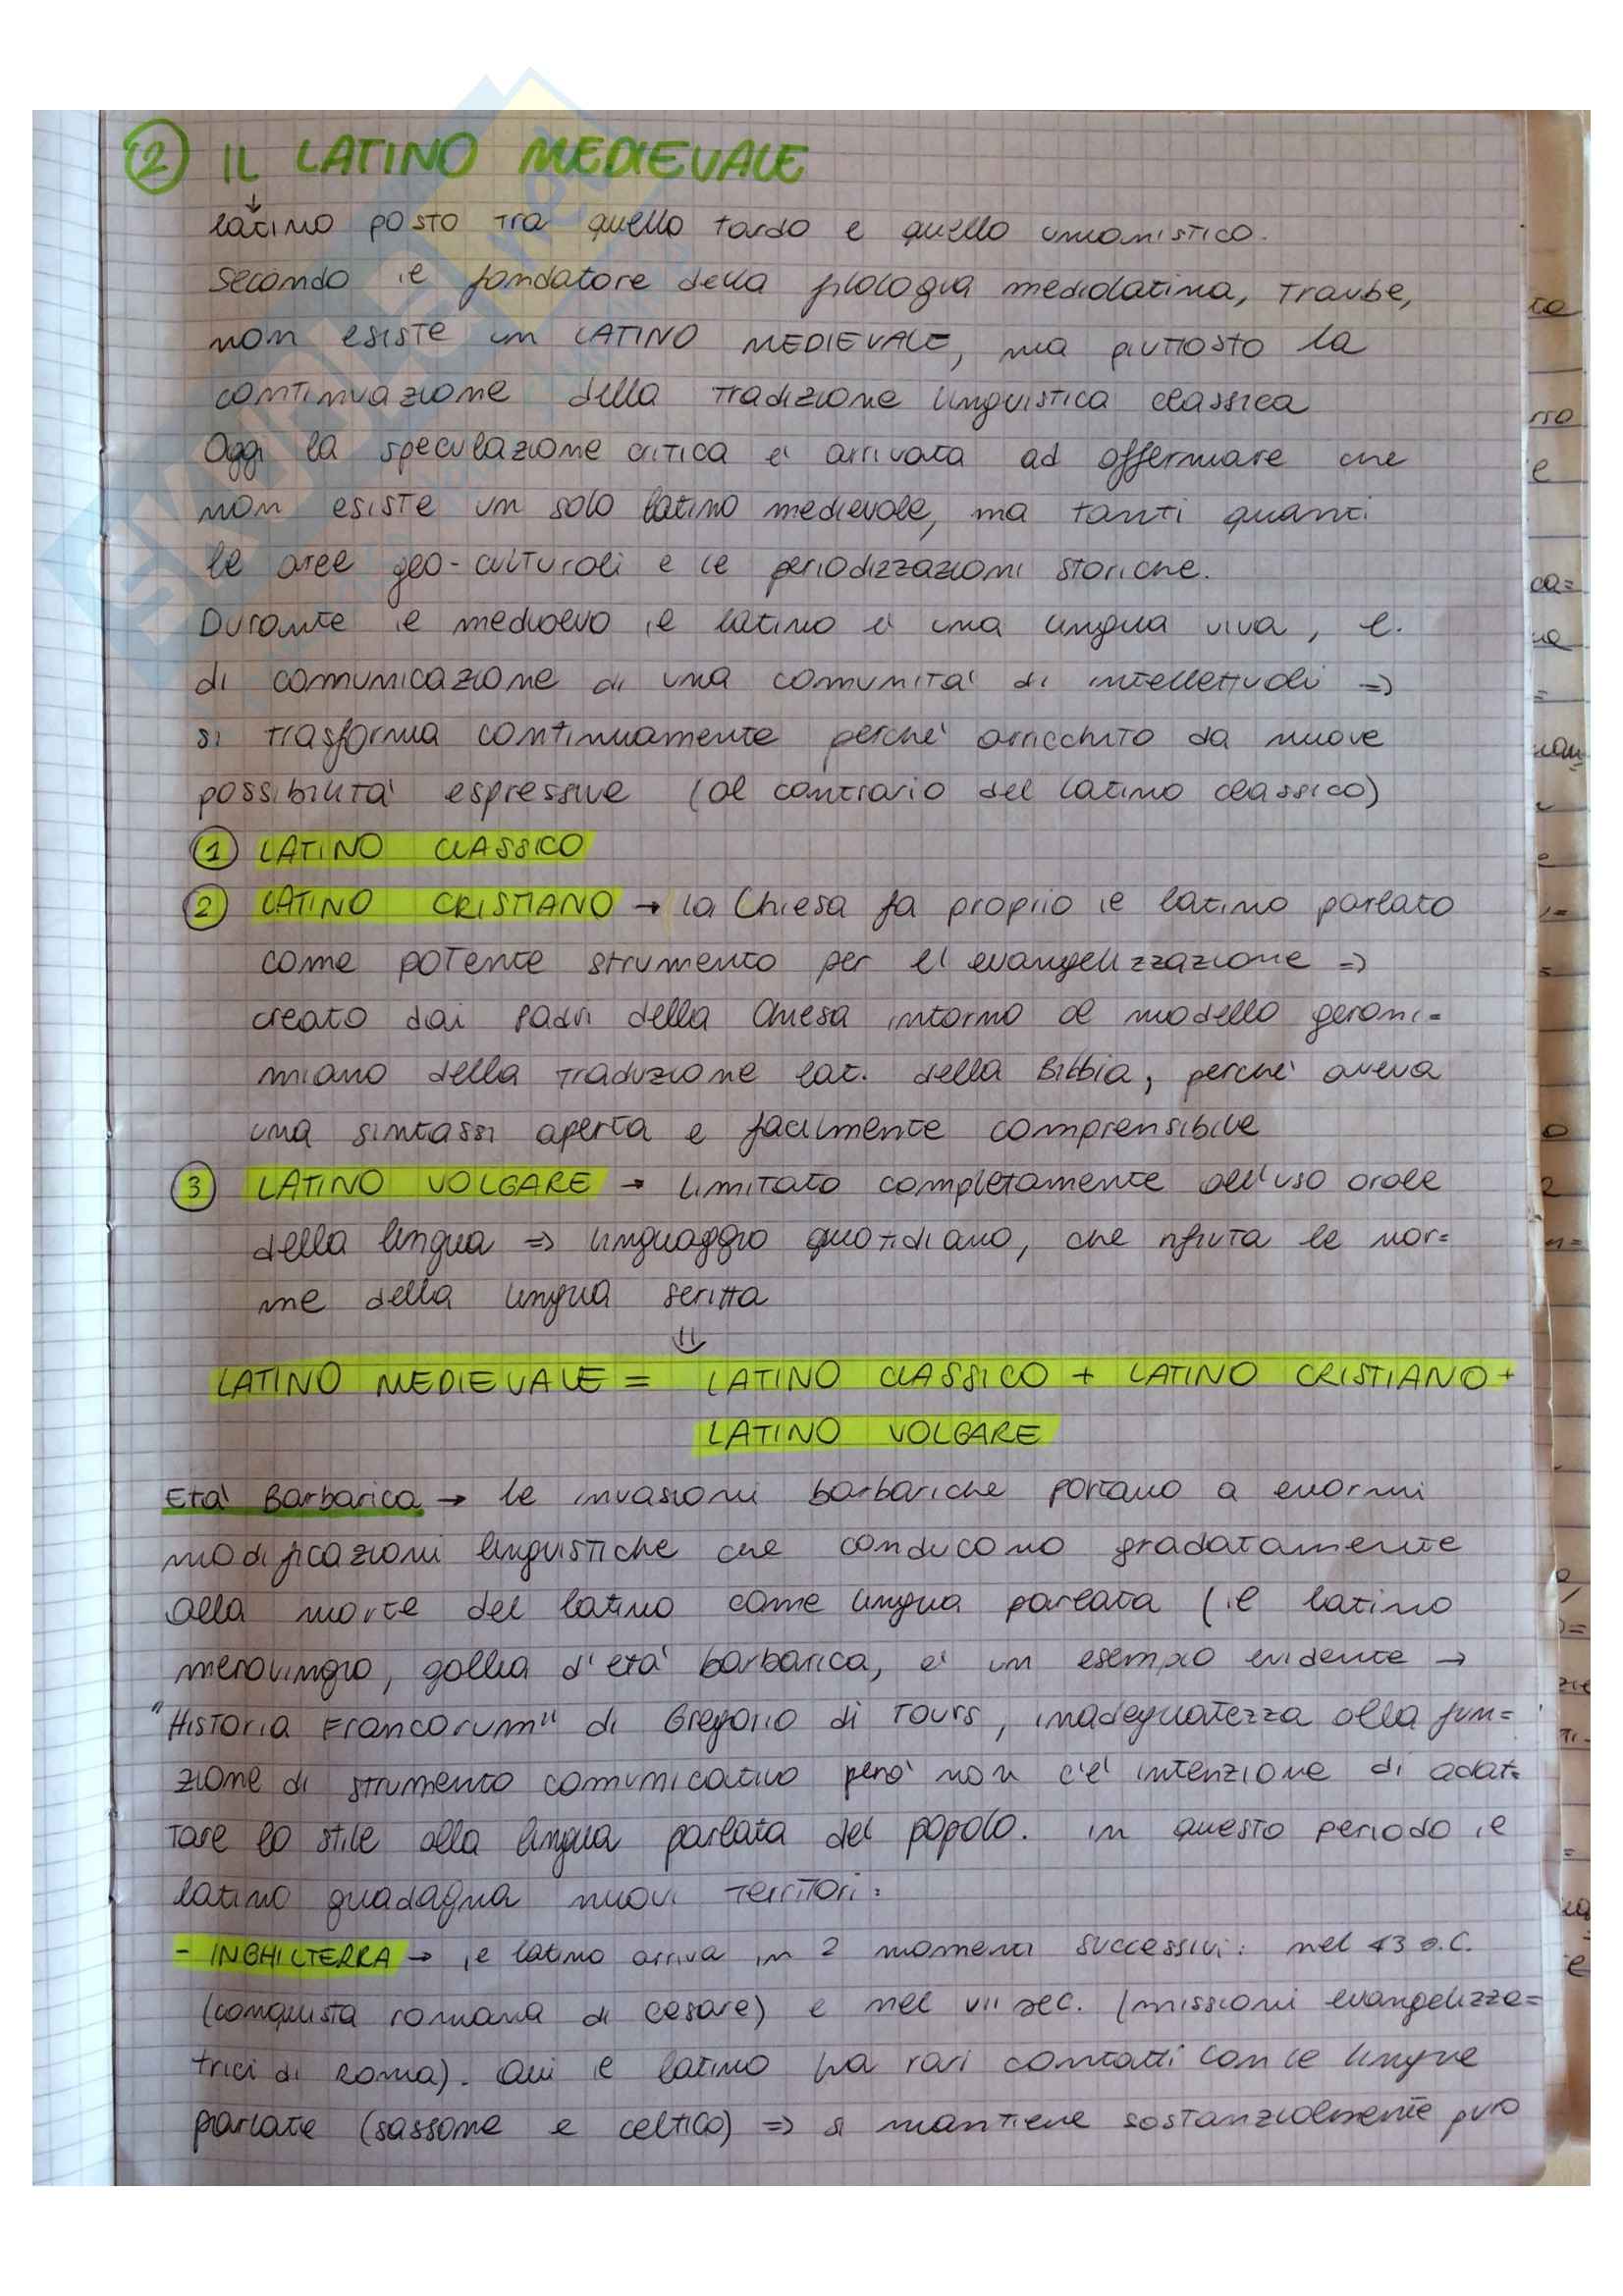 ② IL LATINO MEDIEVALE
↓
latino posto tra quello tardo e quello umanistico.
Secondo il fondatore della filologia mediolatina, Traube,
non esiste un LATINO MEDIEVALE, ma piuttosto la
continuazione della tradizione linguistica classica
Oggi la speculazione critica e' arrivata ad affermare che
non esiste un solo latino medievale, ma tanti quanti
le aree geo-culturali e le periodizzazioni storiche.
Durante il medioevo il latino e' una lingua viva, e.
di comunicazione di una comunita' di intellettuali =>
si trasforma continuamente perche' arricchito da nuove
possibilita' espressive (al contrario del latino classico)
① LATINO CLASSICO
② LATINO CRISTIANO → la Chiesa fa proprio il latino parlato
come potente strumento per l'evangelizzazione =>
creato dai Padri della Chiesa intorno al modello geroni=
miano della traduzione lat. della Bibbia, perche' aveva
una sintassi aperta e facilmente comprensibile
③ LATINO VOLGARE → limitato completamente all'uso orale
della lingua => linguaggio quotidiano, che rifiuta le nor=
me della lingua scritta
⇓
LATINO MEDIEVALE = LATINO CLASSICO + LATINO CRISTIANO +
LATINO VOLGARE
Eta' Barbarica → le invasioni barbariche portano a enormi
modificazioni linguistiche che conducono gradatamente
alla morte del latino come lingua parlata (il latino
merovingio, gallia d'eta' barbarica, e' un esempio evidente →
"Historia Francorum" di Gregorio di Tours, inadeguatezza alla fun=
zione di strumento comunicativo pero' non c'e' intenzione di adat=
tare lo stile alla lingua parlata del popolo. In questo periodo il
latino guadagna nuovi territori:
- INGHILTERRA → il latino arriva in 2 momenti successivi: nel 43 a.C.
(conquista romana di Cesare) e nel VII sec. (missioni evangelizza=
trici di Roma). Qui il latino ha rari contatti con le lingue
parlate (sassone e celtico) => si mantiene sostanzialmente puro